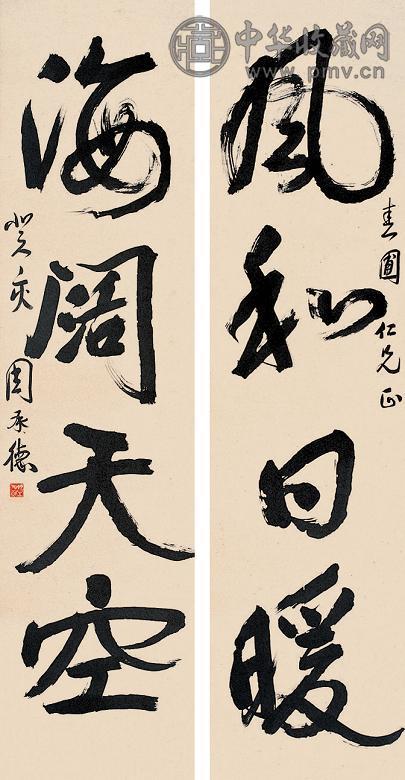 风和日暖
春圃仁兄正
海阔天空
癸亥周承德
中华收藏网
www.pmv.cn